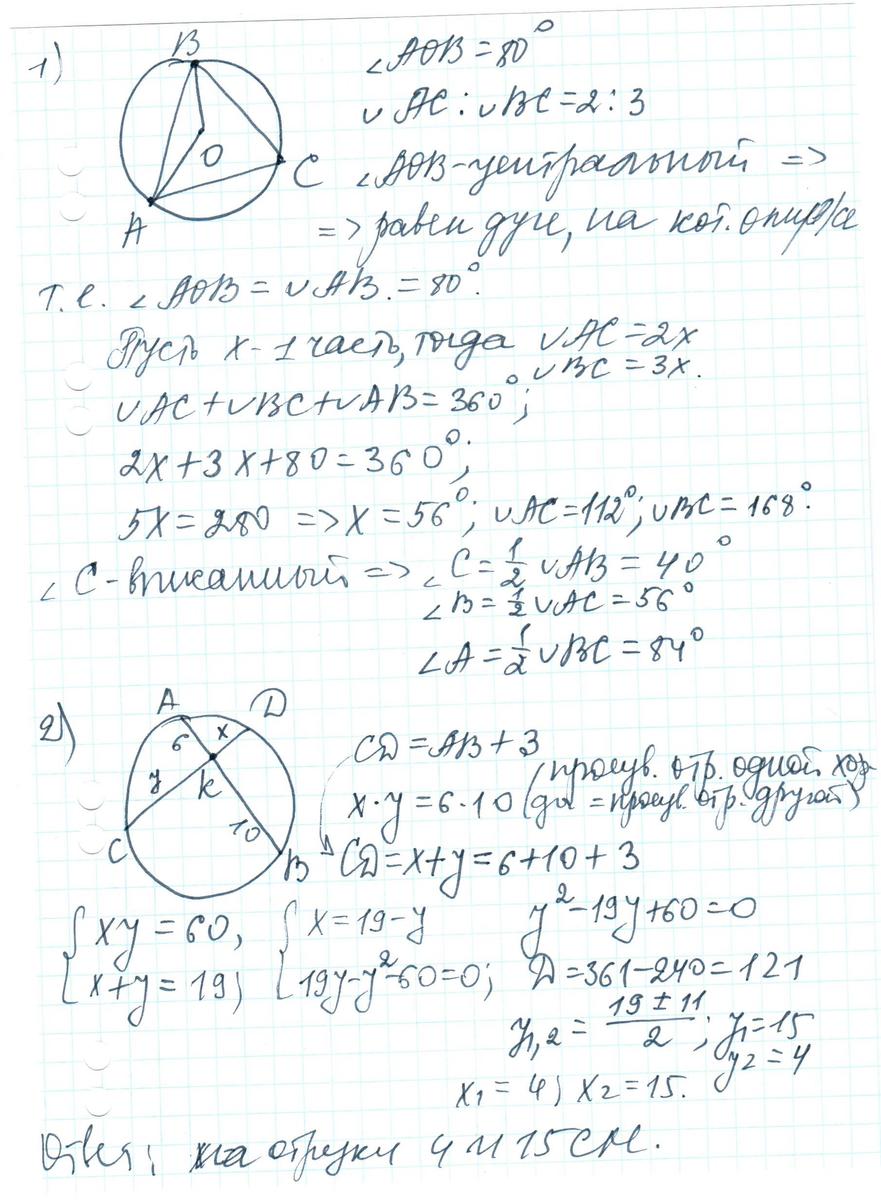 1)
B
O
C
A
∠AOB = 80°
∪AC : ∪BC = 2 : 3
∠AOB - центральный =>
=> равен дуге, на кот. опир/ся
т.е. ∠AOB = ∪AB. = 80°.
Пусть x - 1 часть, тогда ∪AC = 2x
∪BC = 3x.
∪AC + ∪BC + ∪AB = 360°;
2x + 3x + 80 = 360°;
5x = 280 => x = 56°; ∪AC = 112°; ∪BC = 168°.
∠C - вписанный => ∠C = 1/2 ∪AB = 40°
∠B = 1/2 ∪AC = 56°
∠A = 1/2 ∪BC = 84°
2)
A
D
6
x
y
K
10
C
B
CD = AB + 3
x · y = 6 · 10 (произв. отр. одной хор-
ды = произв. отр. другой)
CD = x + y = 6 + 10 + 3
{ xy = 60, { x = 19 - y y² - 19y + 60 = 0
x + y = 19; 19y - y² - 60 = 0; D = 361 - 240 = 121
y1,2 = (19 ± 11)/2; y1 = 15
y2 = 4
x1 = 4; x2 = 15.
Ответ: на отрезки 4 и 15 см.